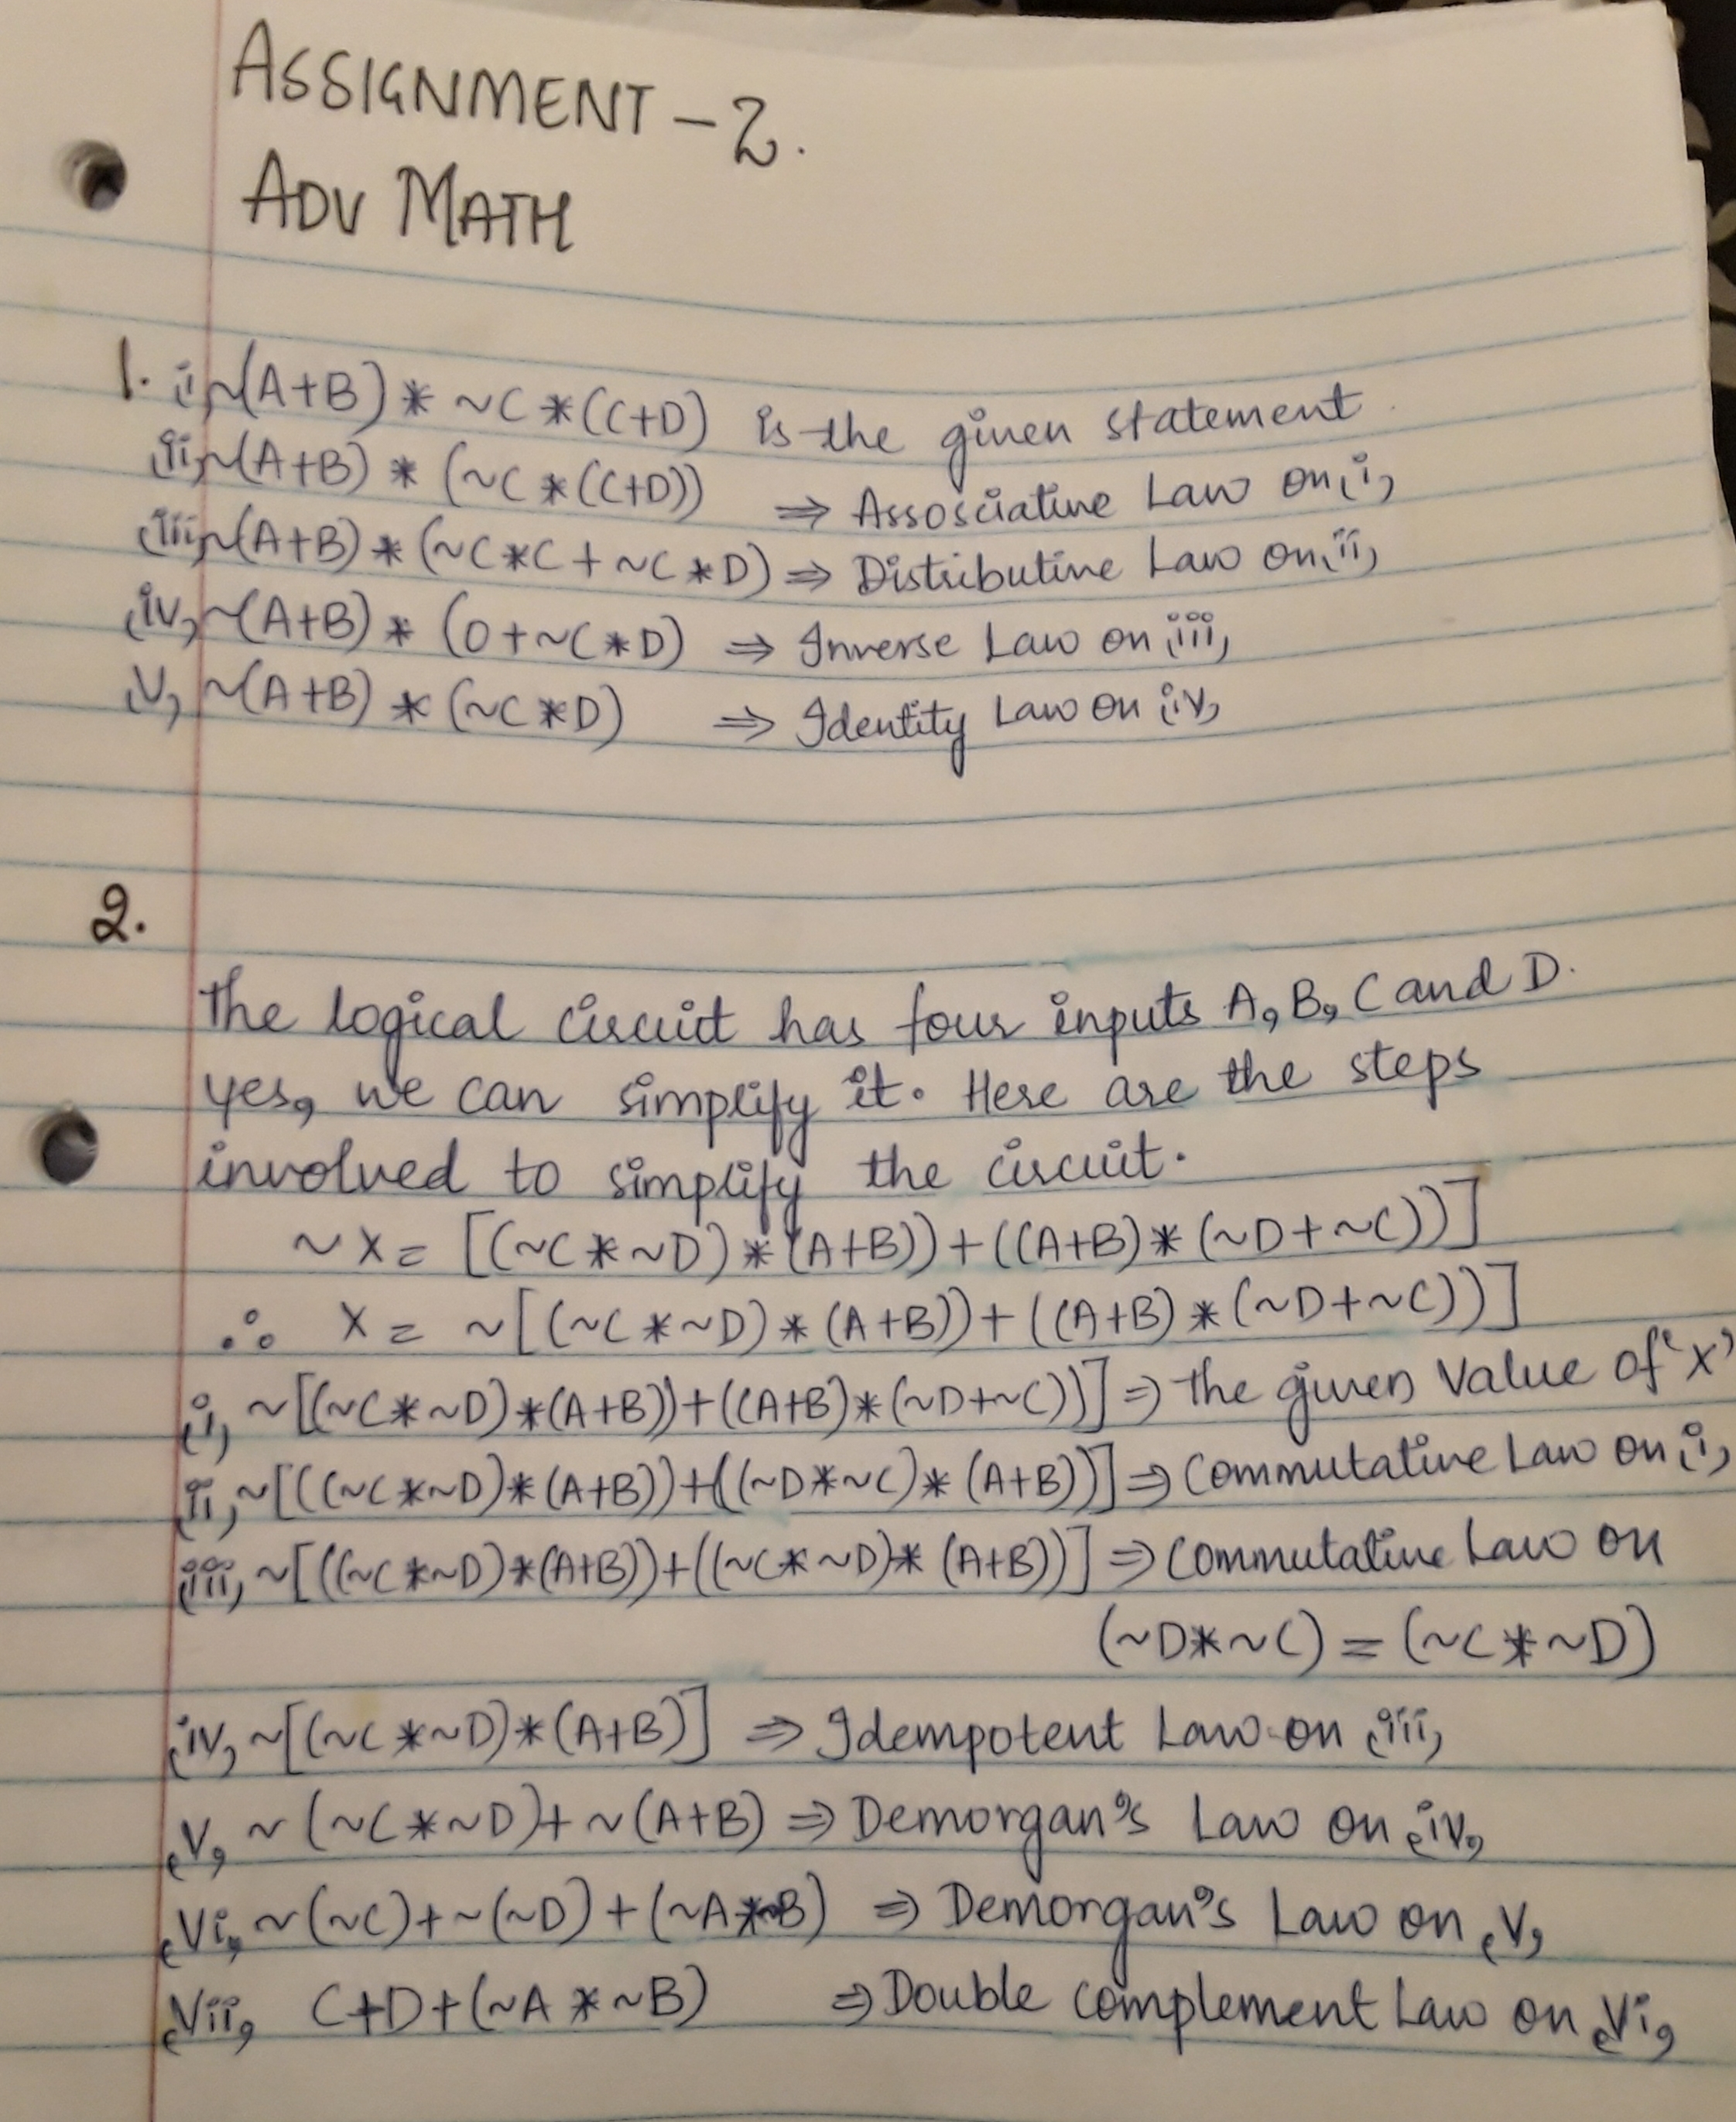 ASSIGNMENT - 2.
ADV MATH
1. i, ~(A+B) * ~C * (C+D) is the given statement.
ii, ~(A+B) * (~C * (C+D)) ⇒ Assosciative Law on i,
iii, ~(A+B) * (~C * C + ~C * D) ⇒ Distributive Law on ii,
iv, ~(A+B) * (0 + ~C * D) ⇒ Inverse Law on iii,
v, ~(A+B) * (~C * D) ⇒ Identity Law on iv,
2.
The logical circuit has four inputs A, B, C and D.
yes, we can simplify it. Here are the steps
involved to simplify the circuit.
~X = [(~C * ~D) * (A+B)) + ((A+B) * (~D + ~C))]
∴ X = ~[(~C * ~D) * (A+B)) + ((A+B) * (~D + ~C))]
i, ~[(~C * ~D) * (A+B)) + ((A+B) * (~D + ~C))] ⇒ The given Value of 'X'
ii, ~[((~C * ~D) * (A+B)) + ((~D * ~C) * (A+B))] ⇒ Commutative Law on i,
iii, ~[((~C * ~D) * (A+B)) + ((~C * ~D) * (A+B))] ⇒ Commutative Law on
(~D * ~C) = (~C * ~D)
iv, ~[(~C * ~D) * (A+B)] ⇒ Idempotent Law on iii,
v, ~(~C * ~D) + ~(A+B) ⇒ Demorgan's Law on iv,
vi, ~(~C) + ~(~D) + (~A * ~B) ⇒ Demorgan's Law on v,
vii, C + D + (~A * ~B) ⇒ Double complement Law on vi,